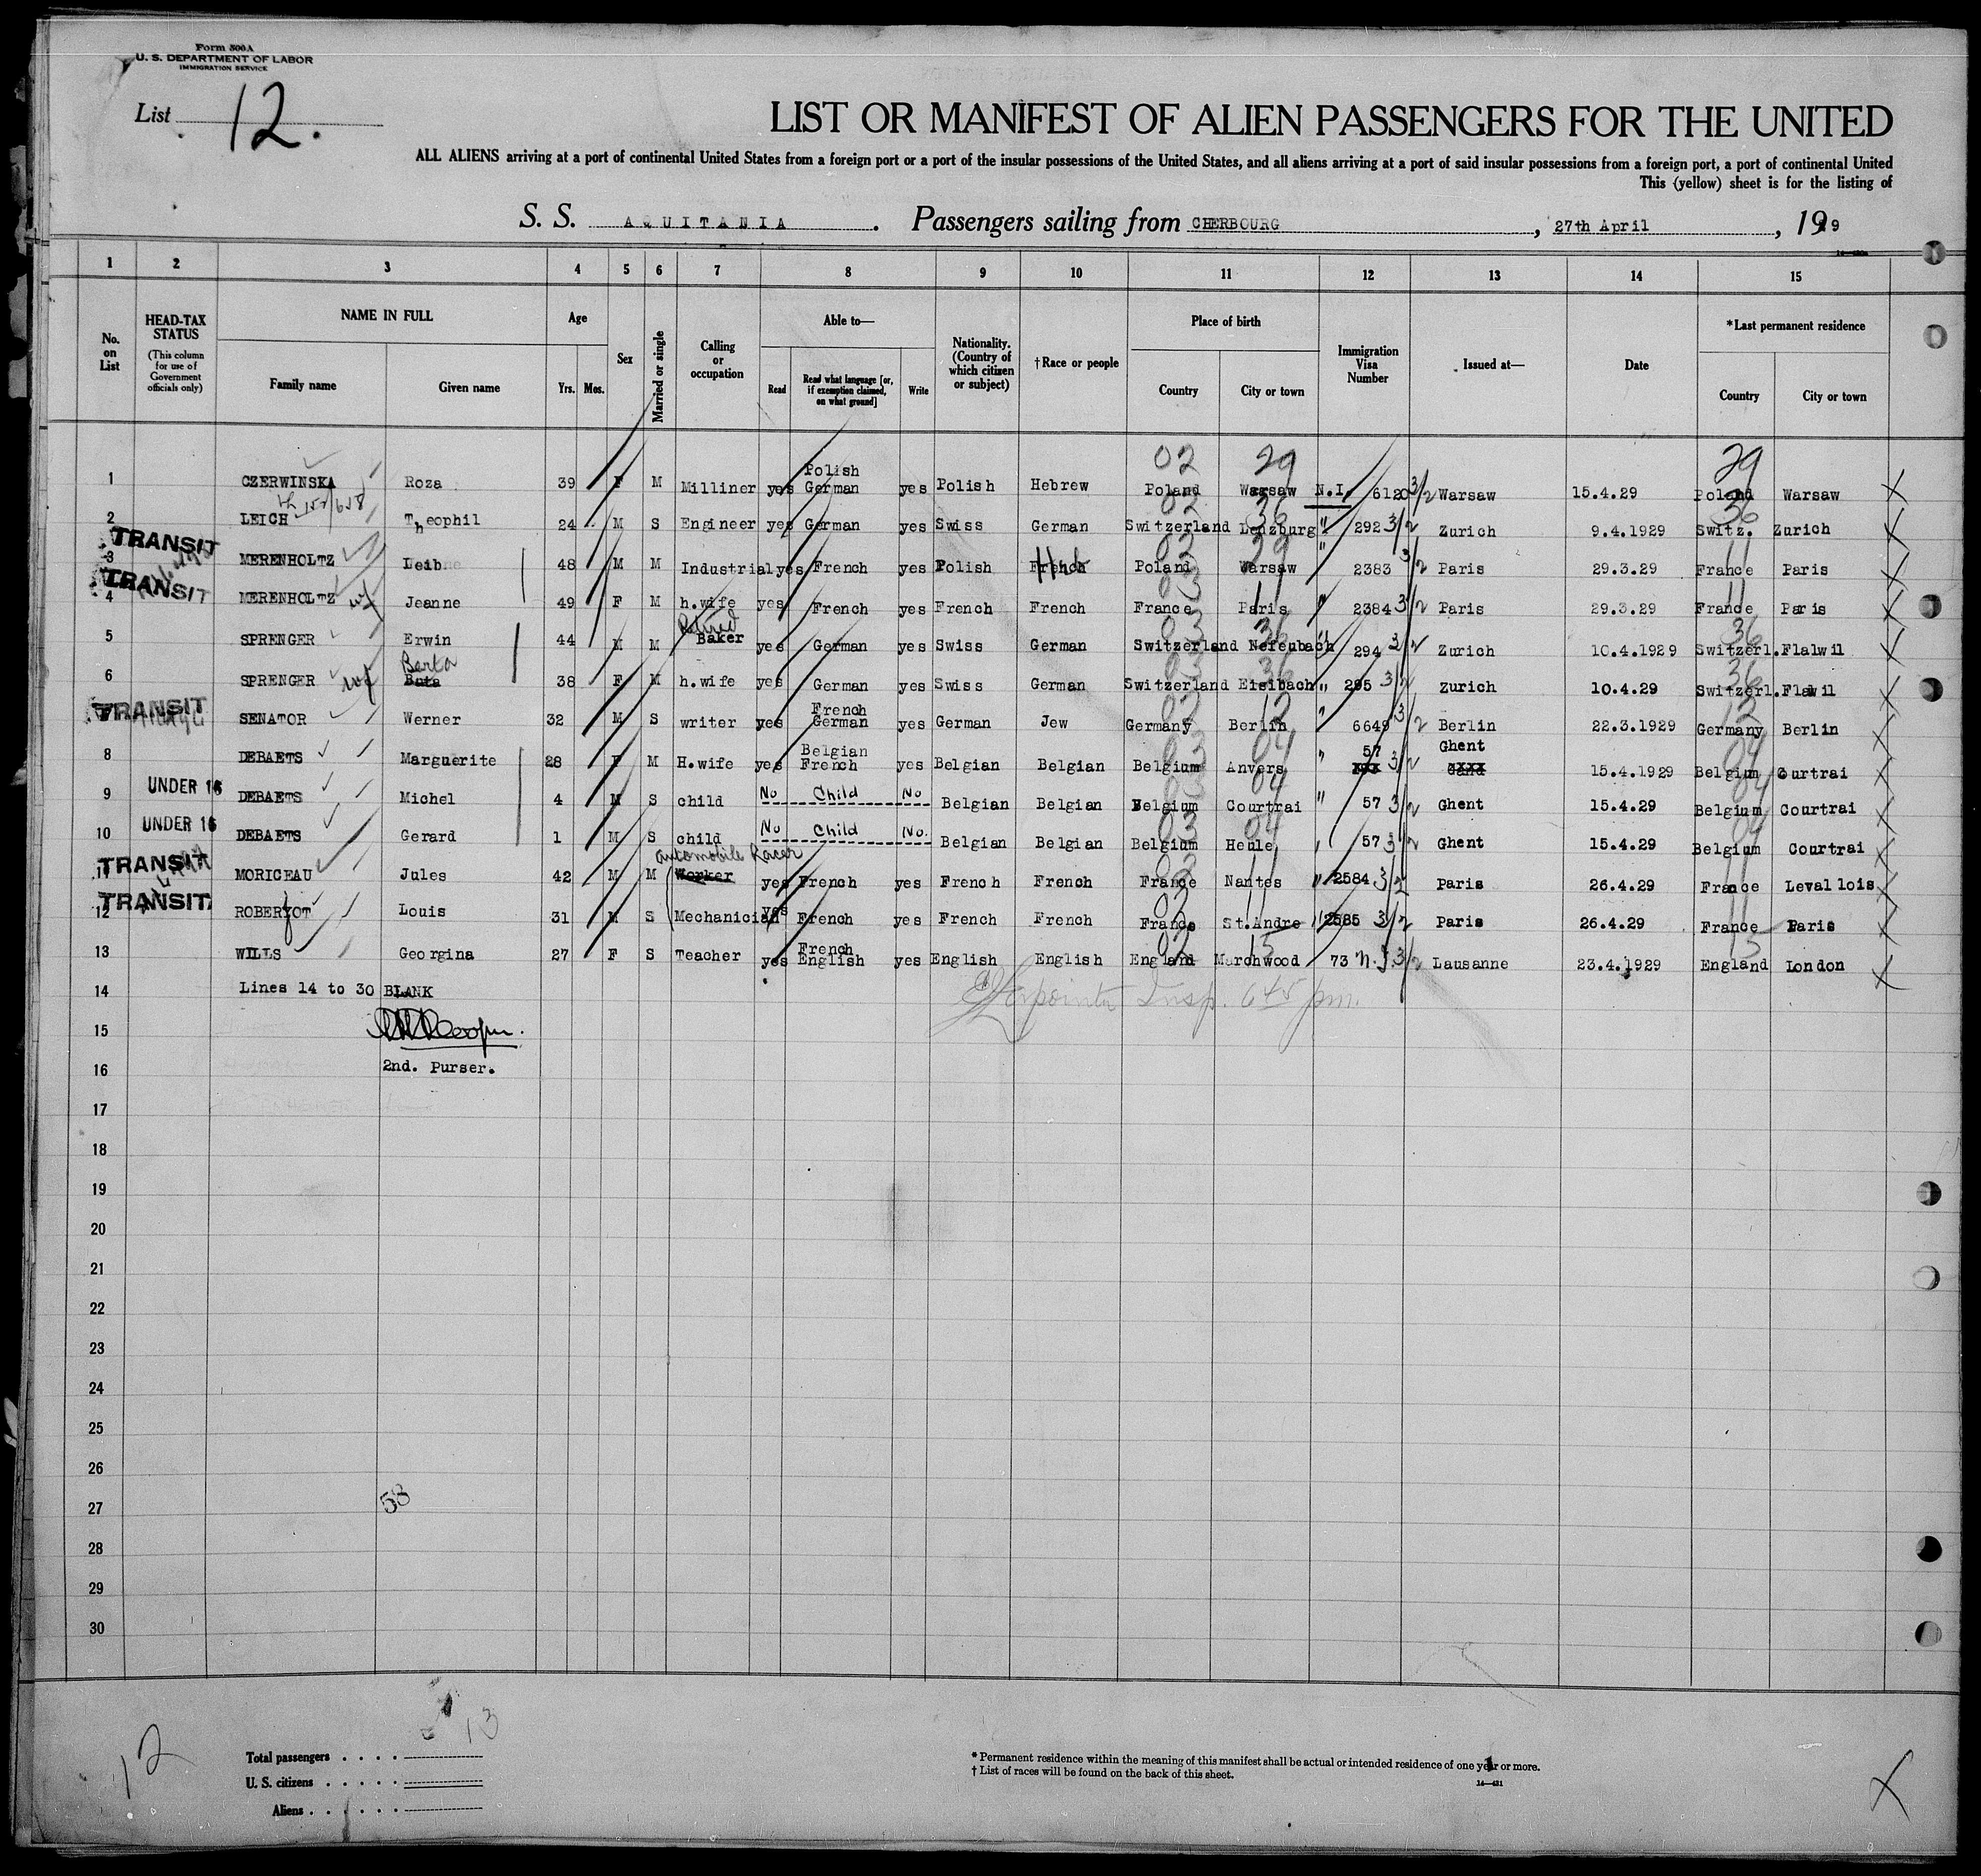 Form 500A
U. S. DEPARTMENT OF LABOR
IMMIGRATION SERVICE
List 12.
LIST OR MANIFEST OF ALIEN PASSENGERS FOR THE UNITED
ALL ALIENS arriving at a port of continental United States from a foreign port or a port of the insular possessions of the United States, and all aliens arriving at a port of said insular possessions from a foreign port, a port of continental United
This (yellow) sheet is for the listing of
S. S. AQUITANIA. Passengers sailing from CHERBOURG, 27th April, 1929
1 2 3 4 5 6 7 8 9 10 11 12 13 14 15
No. on List
HEAD-TAX STATUS (This column for use of Government officials only)
NAME IN FULL Family name Given name
Age Yrs. Mos.
Sex
Married or single
Calling or occupation
Able to— Read Read what language [or, if exemption claimed, on what ground] Write
Nationality. (Country of which citizen or subject)
†Race or people
Place of birth Country City or town
Immigration Visa Number
Issued at—
Date
*Last permanent residence Country City or town
02 29 29
1 CZERWINSKA Roza 39 F M Milliner yes Polish German yes Polish Hebrew Poland Warsaw N.I. 6120 3/2 Warsaw 15.4.29 Poland Warsaw X
02 36 36
2 LEICH Theophil 24 M S Engineer yes German yes Swiss German Switzerland Lenzburg " 292 3/2 Zurich 9.4.1929 Switz. Zurich X
02 29 11
TRANSIT 3 MERENHOLTZ Leib 48 M M Industrial yes French yes Polish French Heb Poland Warsaw " 2383 3/2 Paris 29.3.29 France Paris X
03 11 11
TRANSIT 4 MERENHOLTZ wf Jeanne 49 F M h.wife yes French yes French French France Paris " 2384 3/2 Paris 29.3.29 France Paris X
03 36 36
5 SPRENGER Erwin 44 M M Retired Baker yes German yes Swiss German Switzerland Nefenbach " 294 3/2 Zurich 10.4.1929 Switzerl. Flalwil X
03 36 36
6 SPRENGER wf Berta Bata 38 F M h.wife yes German yes Swiss German Switzerland Eisibach " 295 3/2 Zurich 10.4.29 Switzerl. Flawil X
02 12 12
TRANSIT 7 SENATOR Werner 32 M S writer yes French German yes German Jew Germany Berlin " 6649 3/2 Berlin 22.3.1929 Germany Berlin X
03 04 04
8 DEBAETS Marguerite 28 F M H.wife yes Belgian French yes Belgian Belgian Belgium Anvers " 57 xxx 3/2 Ghent 15.4.1929 Belgium Courtrai X
04 04
9 UNDER 16 DEBAETS Michel 4 M S child No Child No Belgian Belgian Belgium Courtrai " 57 3/2 Ghent 15.4.29 Belgium Courtrai X
03 04 04
10 UNDER 16 DEBAETS Gerard 1 M S child No Child No. Belgian Belgian Belgium Heule " 57 3/2 Ghent 15.4.29 Belgium Courtrai X
02 11 11
TRANSIT 11 MORICEAU Jules 42 M M Automobile Racer Worker yes French yes French French France Nantes " 2584 3/2 Paris 26.4.29 France Levallois X
02 11 11
TRANSIT 12 ROBERYOT Louis 31 M S Mechanician yes French yes French French France St.Andre " 2585 3/2 Paris 26.4.29 France Paris X
02 15 15
13 WILLS Georgina 27 F S Teacher yes French English yes English English England Marchwood 73 n.I. 3/2 Lausanne 23.4.1929 England London X
14 Lines 14 to 30 BLANK
Insp. 645 pm.
15
16 2nd. Purser.
17
18
19
20
21
22
23
24
25
26
27 58
28
29
30
12 13
Total passengers
U. S. citizens
Aliens
* Permanent residence within the meaning of this manifest shall be actual or intended residence of one year or more.
† List of races will be found on the back of this sheet.
14—431
X